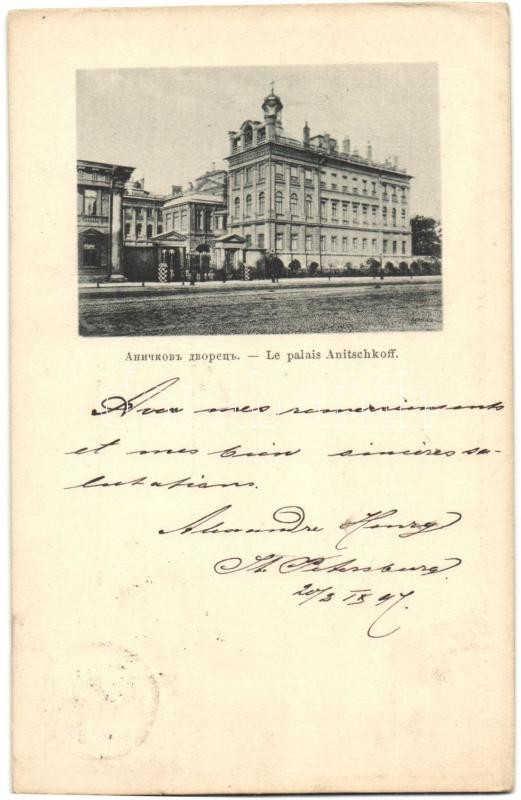 Аничковъ дворецъ. — Le palais Anitschkoff.
Avec mes remerciements
et mes bien sincères sa-
lutations.
Alexandre
St. Petersburg.